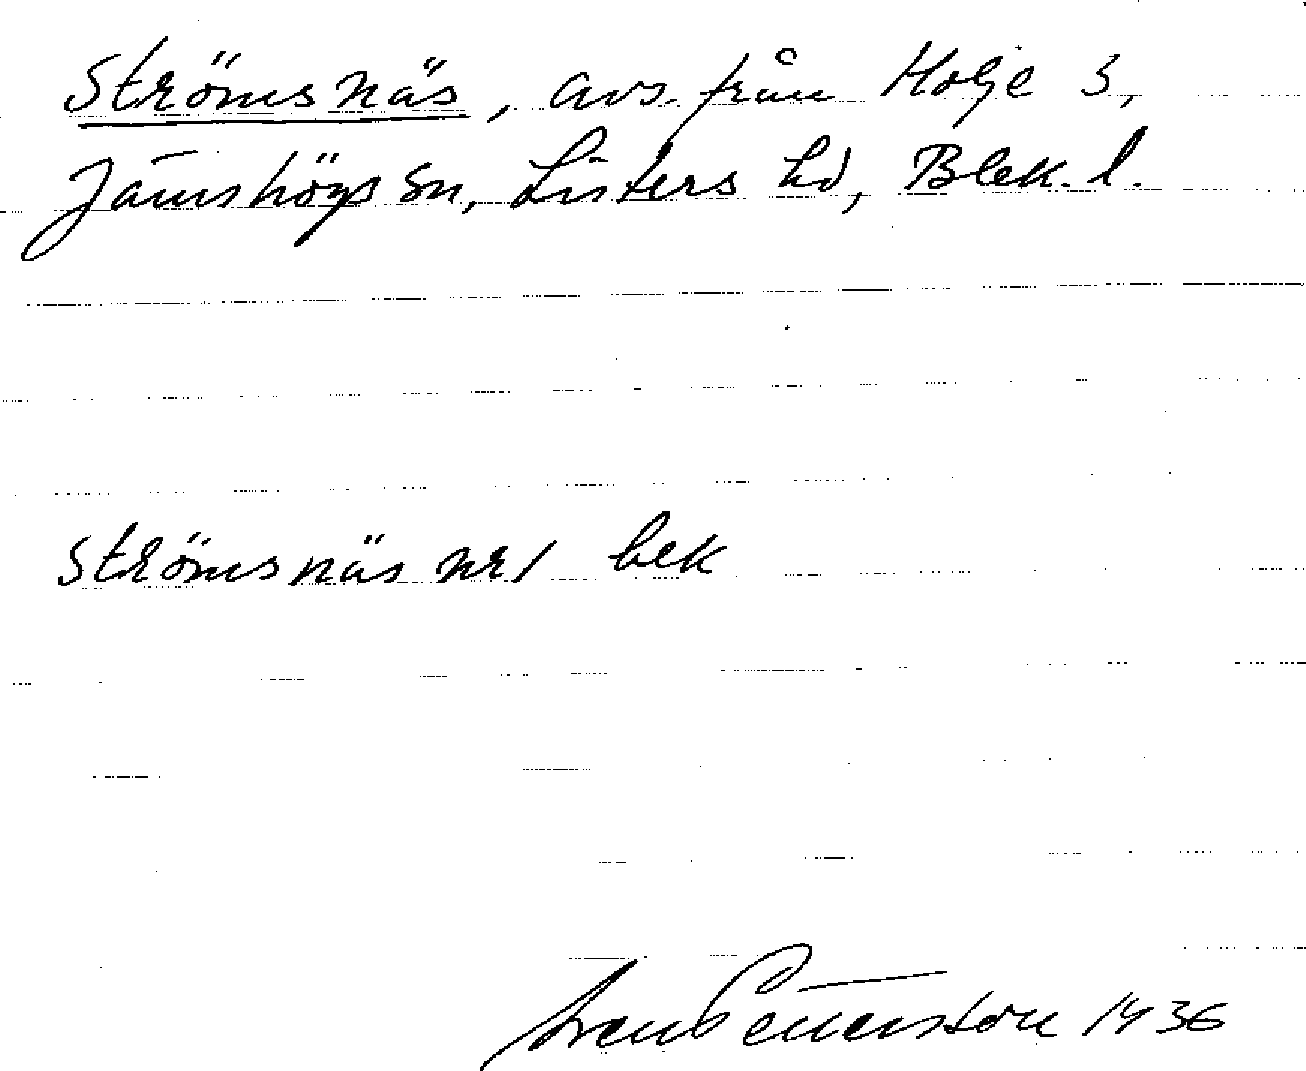 Strömsnäs, avs. från Holje 3,
Jämshögs sn, Listers hd, Blek. l.
Strömsnäs nr 1 bek
Sven Petterson 1936